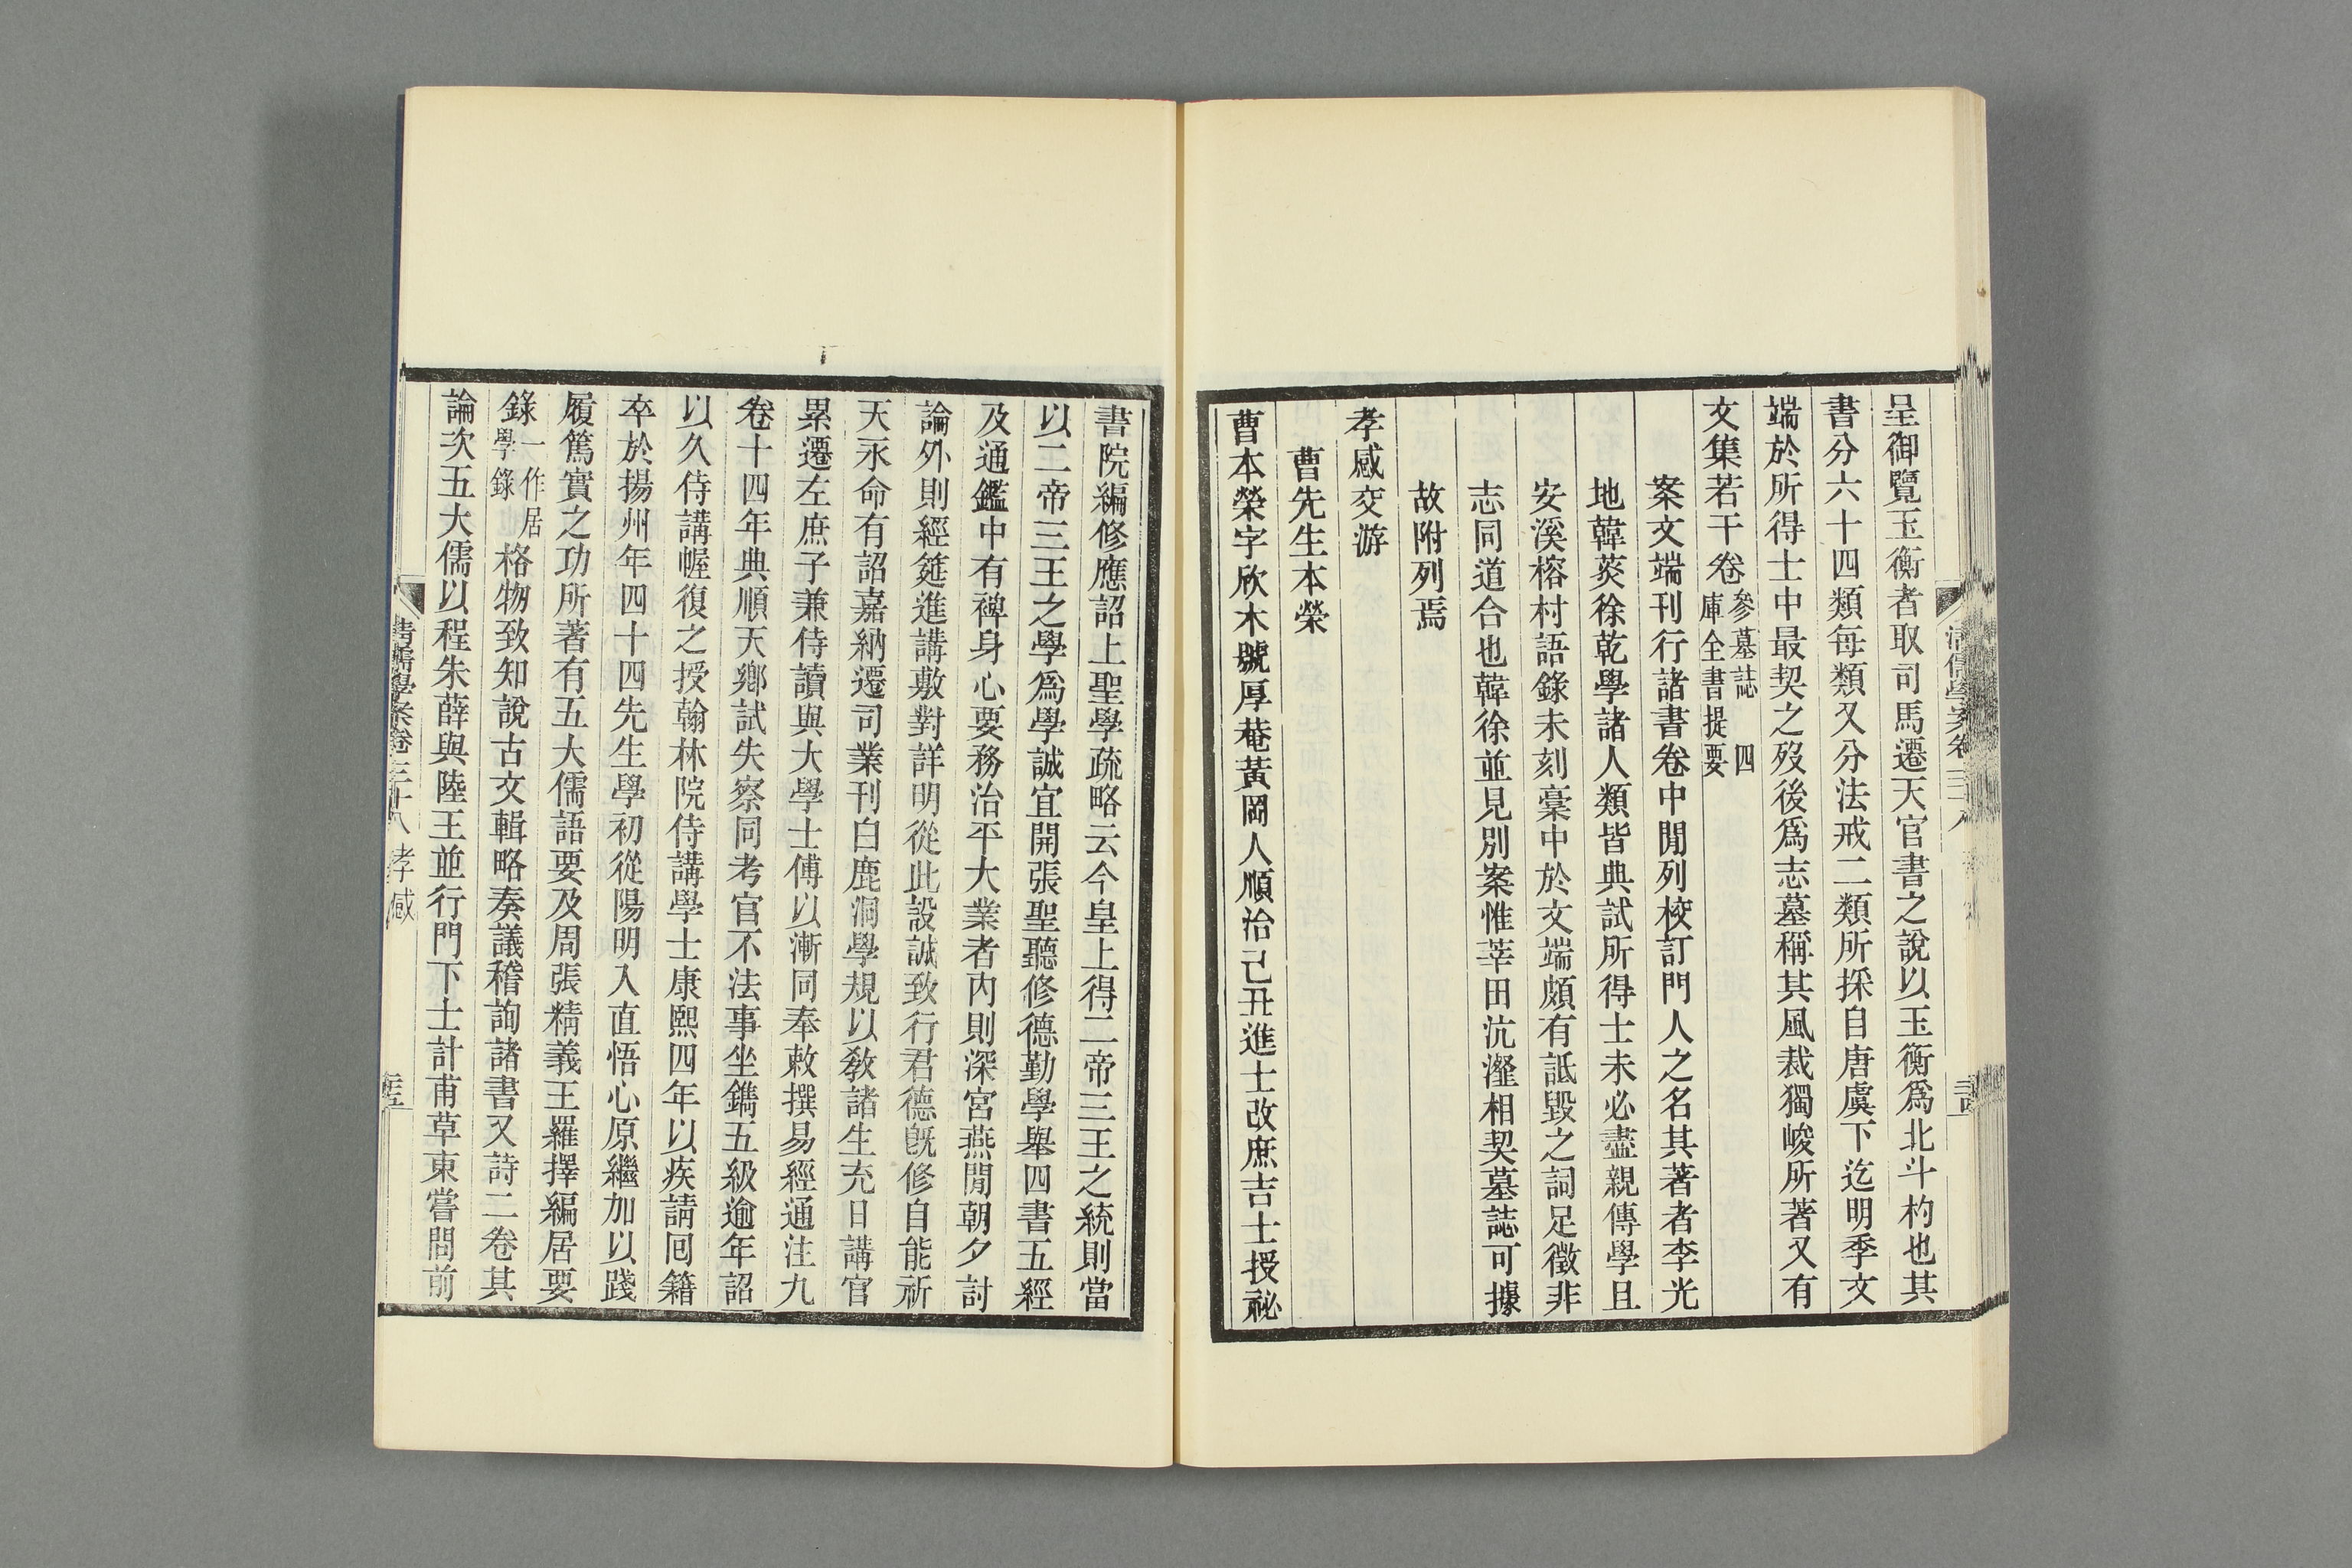 呈御覽玉衡者取司馬遷天官書之說以玉衡爲北斗杓也其
書分六十四類每類又分法戒二類所採自唐虞下迄明季文
端於所得士中最契之歿後爲志墓稱其風裁獨峻所著又有
文集若干卷參墓誌四庫全書提要
案文端刊行諸書卷中閒列校訂門人之名其著者李光
地韓菼徐乾學諸人類皆典試所得士未必盡親傳學且
安溪榕村語錄未刻稾中於文端頗有詆毀之詞足徵非
志同道合也韓徐並見別案惟莘田沆瀣相契墓誌可據
故附列焉
孝感交游
曹先生本榮
曹本榮字欣木號厚菴黃岡人順治己丑進士改庶吉士授祕
書院編修應詔上聖學疏略云今皇上得二帝三王之統則當
以二帝三王之學爲學誠宜開張聖聽修德勤學舉四書五經
及通鑑中有裨身心要務治平大業者內則深宮燕閒朝夕討
論外則經筵進講敷對詳明從此設誠致行君德旣修自能祈
天永命有詔嘉納遷司業刊白鹿洞學規以敎諸生充日講官
累遷左庶子兼侍讀與大學士傅以漸同奉敕撰易經通注九
卷十四年典順天鄉試失察同考官不法事坐鐫五級逾年詔
以久侍講幄復之授翰林院侍講學士康熙四年以疾請囘籍
卒於揚州年四十四先生學初從陽明入直悟心原繼加以踐
履篤實之功所著有五大儒語要及周張精義王羅擇編居要
錄一作居學錄格物致知說古文輯略奏議稽詢諸書又詩二卷其
論次五大儒以程朱薛與陸王並行門下士計甫草東嘗問前
清儒學案卷三十八 孝感